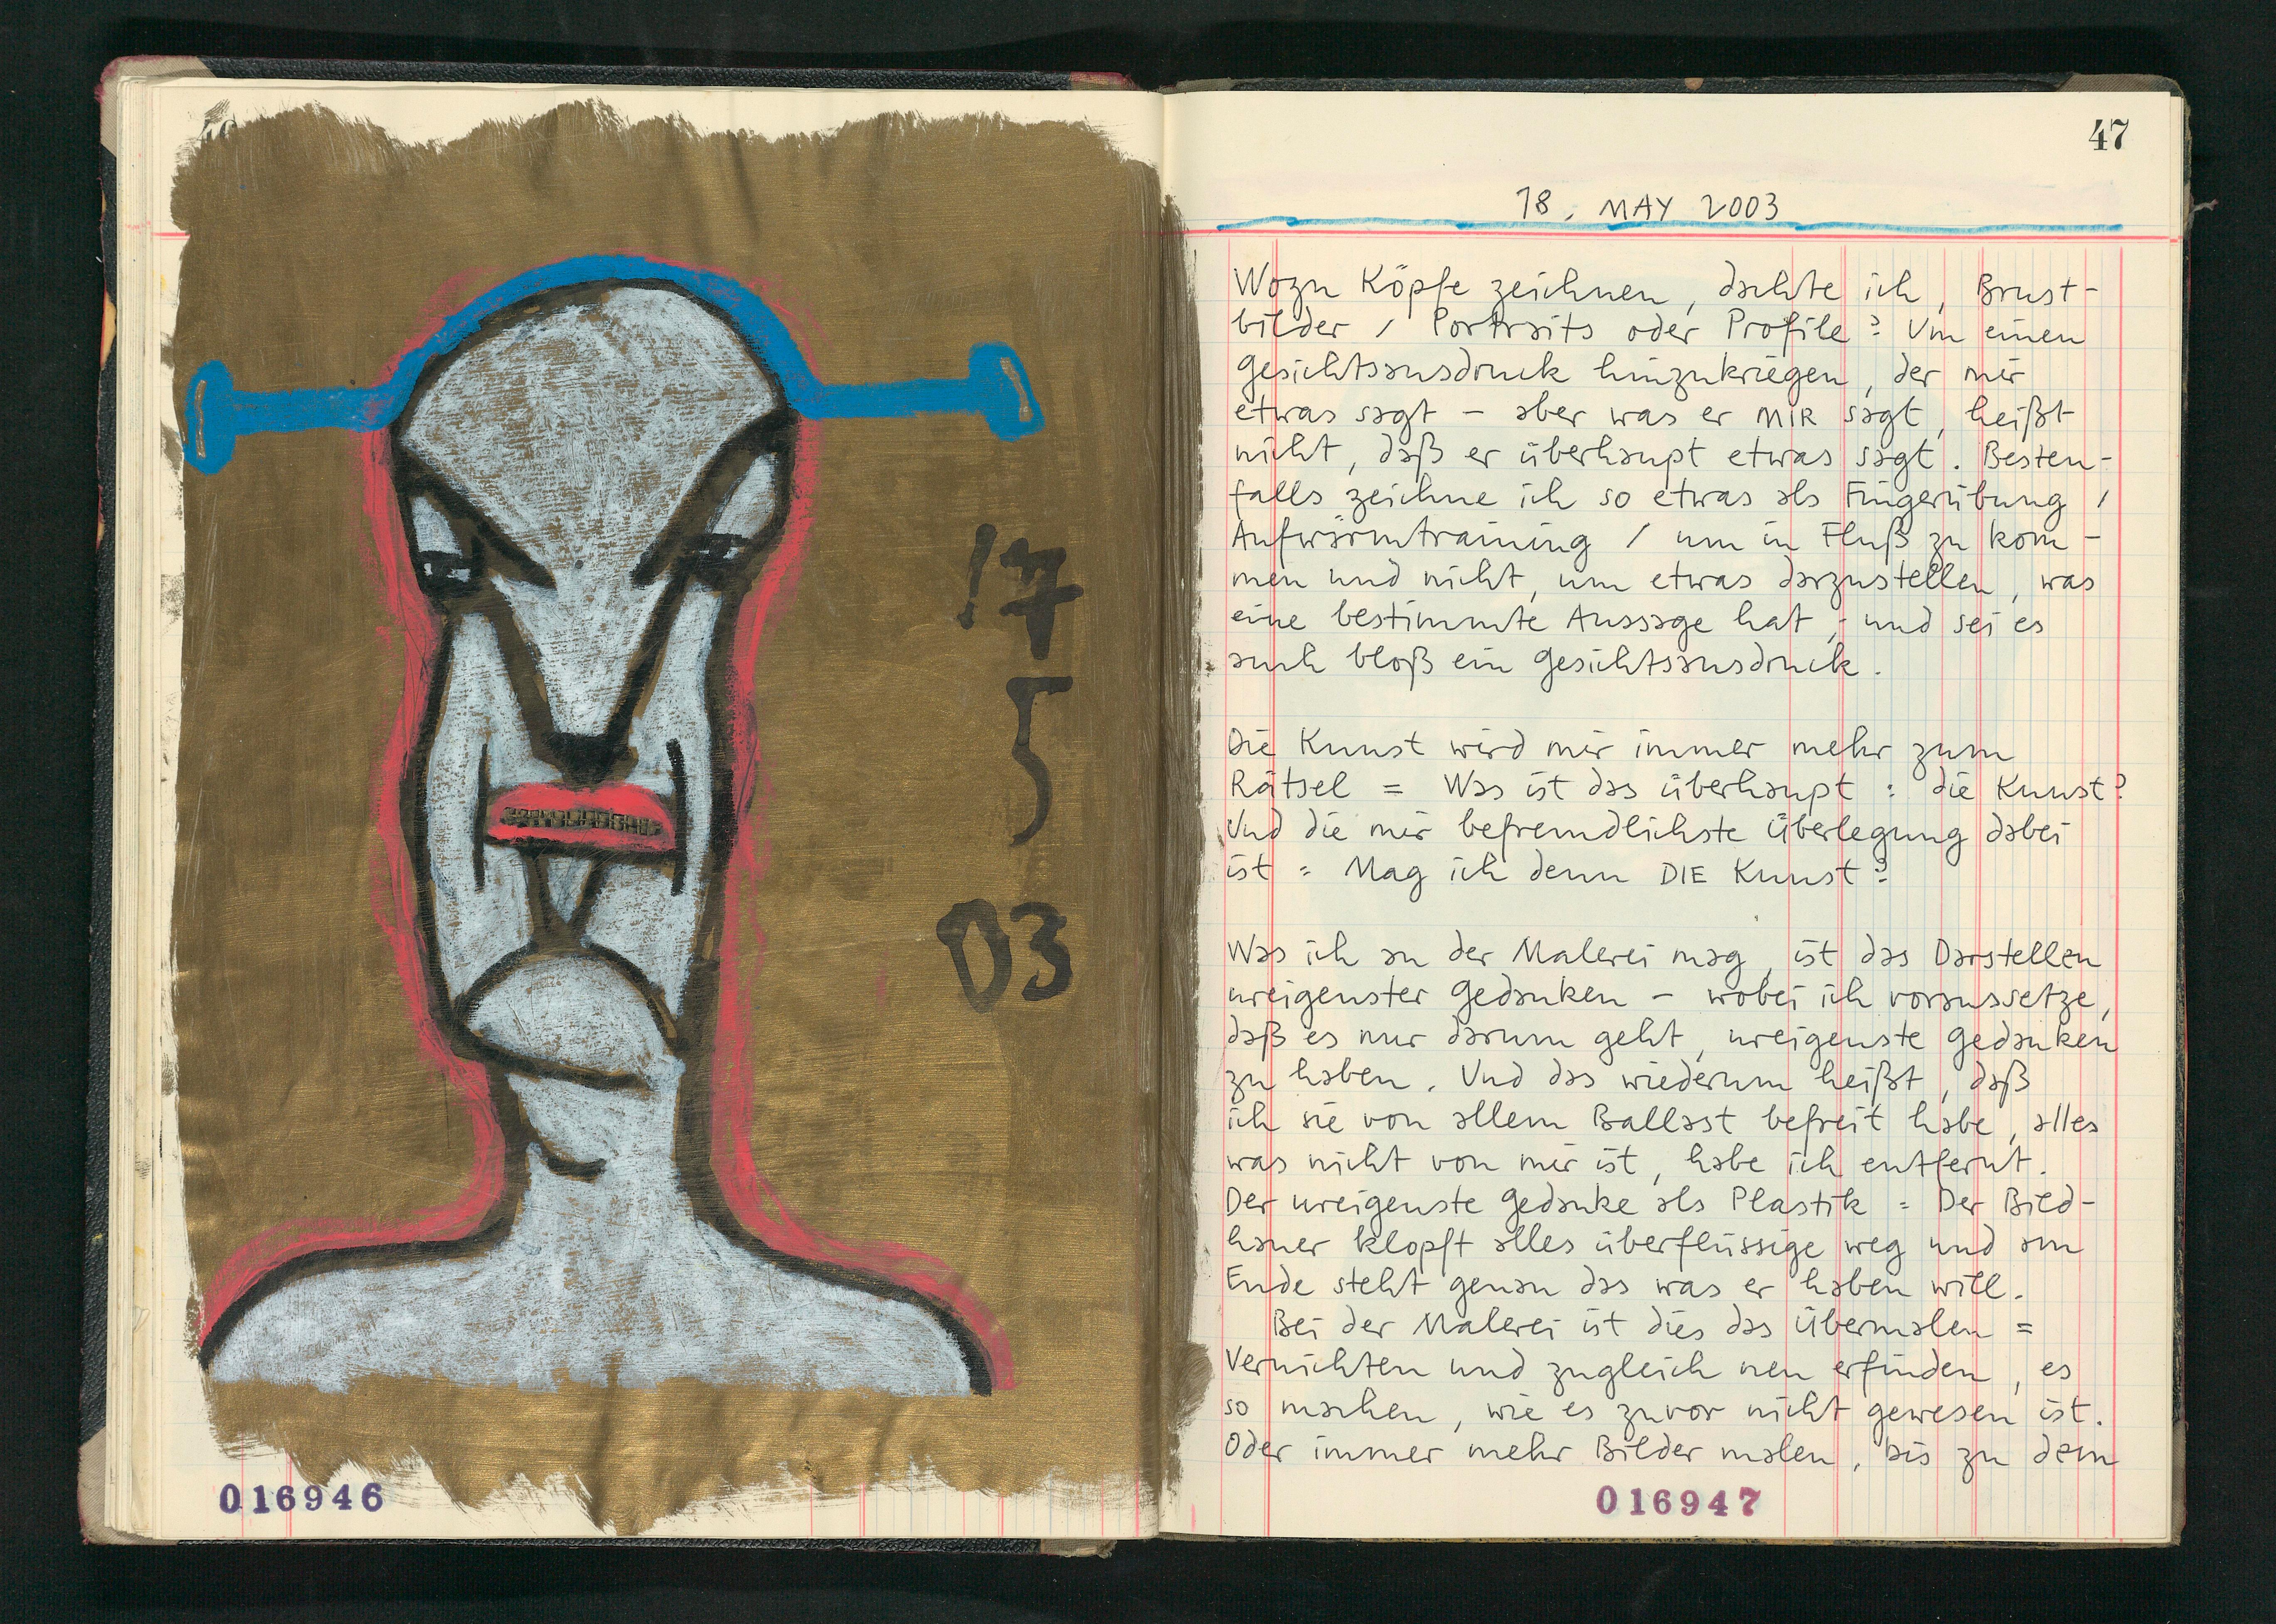 17
5
03
016946
47
18. MAY 2003
Wozu Köpfe zeichnen, dachte ich, Brust-
bilder / Portraits oder Profile? Um einen
Gesichtsausdruck hinzukriegen, der mir
etwas sagt – aber was er MIR sagt, heißt
nicht, daß er überhaupt etwas sagt. Besten-
falls zeichne ich so etwas als Fingerübung /
Aufwärmtraining / um in Fluß zu kom-
men und nicht, um etwas darzustellen, was
eine bestimmte Aussage hat, – und sei es
auch bloß ein Gesichtsausdruck.
Die Kunst wird mir immer mehr zum
Rätsel = Was ist das überhaupt : die Kunst?
Und die mir befremdlichste Überlegung dabei
ist : Mag ich denn DIE Kunst?
Was ich an der Malerei mag, ist das Darstellen
ureigenster Gedanken – wobei ich voraussetze,
daß es nur darum geht, ureigenste Gedanken
zu haben. Und das wiederum heißt, daß
ich sie von allem Ballast befreit habe, alles
was nicht von mir ist, habe ich entfernt.
Der ureigenste Gedanke als Plastik = Der Bild-
hauer klopft alles überflüssige weg und am
Ende steht genau das was er haben will.
Bei der Malerei ist dies das Übermalen =
Vernichten und zugleich neu erfinden, es
so machen, wie es zuvor nicht gewesen ist.
Oder immer mehr Bilder malen, bis zu dem
016947